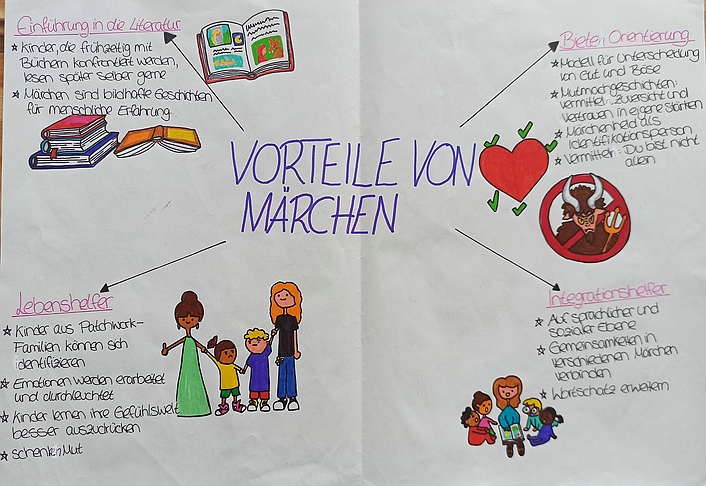 Einführung in die Literatur
☆ Kinder, die frühzeitig mit
Büchern konfrontiert werden,
lesen später selber gerne
☆ Märchen sind bildhafte Geschichten
für menschliche Erfahrung
VORTEILE VON
MÄRCHEN
Bieten Orientierung
☆ Modell für Unterscheidung
von Gut und Böse
☆ Mutmachgeschichten:
vermitteln Zuversicht und
Vertrauen in eigene Stärken
☆ Märchenheld als
Identifikationsperson
☆ Vermitteln: Du bist nicht
allein
Lebenshelfer
☆ Kinder aus Patchwork-
Familien können sich
identifizieren
☆ Emotionen werden erarbeitet
und durchleuchtet
☆ Kinder lernen ihre Gefühlswelt
besser auszudrücken
☆ schenken Mut
Integrationshelfer
☆ Auf sprachlicher und
sozialer Ebene
☆ Gemeinsamkeiten in
verschiedenen Märchen
verbinden
☆ Wortschatz erweitern